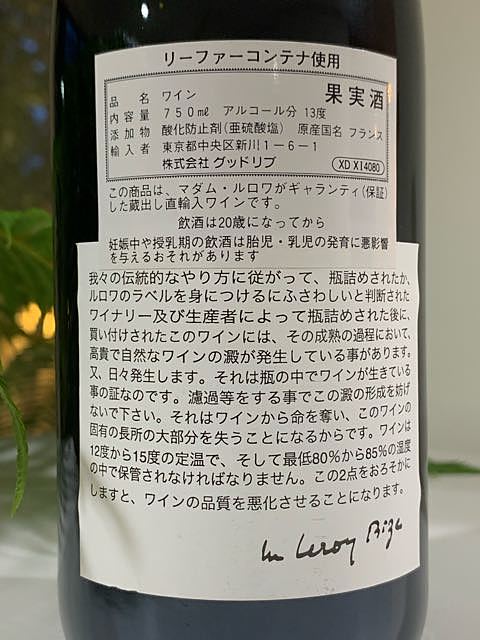 リーファーコンテナ使用
果実酒
品名 ワイン
内容量 750㎖ アルコール分 13度
添加物 酸化防止剤(亜硫酸塩) 原産国名 フランス
輸入者 東京都中央区新川1-6-1
株式会社 グッドリブ
XD XI4080
この商品は、マダム・ルロワがギャランティ(保証)
した蔵出し直輸入ワインです。
飲酒は20歳になってから
妊娠中や授乳期の飲酒は胎児・乳児の発育に悪影響
を与えるおそれがあります
我々の伝統的なやり方に従がって、瓶詰めされたか、
ルロワのラベルを身につけるにふさわしいと判断された
ワイナリー及び生産者によって瓶詰めされた後に、
買い付けされたこのワインには、その成熟の過程において、
高貴で自然なワインの澱が発生している事があります。
又、日々発生します。それは瓶の中でワインが生きている
事の証なのです。濾過等をする事でこの澱の形成を妨げ
ないで下さい。それはワインから命を奪い、このワインの
固有の長所の大部分を失うことになるからです。ワインは
12度から15度の定温で、そして最低80%から85%の湿度
の中で保管されなければなりません。この2点をおろそかに
しますと、ワインの品質を悪化させることになります。
Leroy Bize